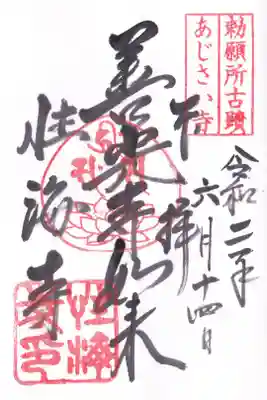 勅願所古蹟
あじさい寺
奉拝
令和二年
六月十四日
善光寺如来
性海寺